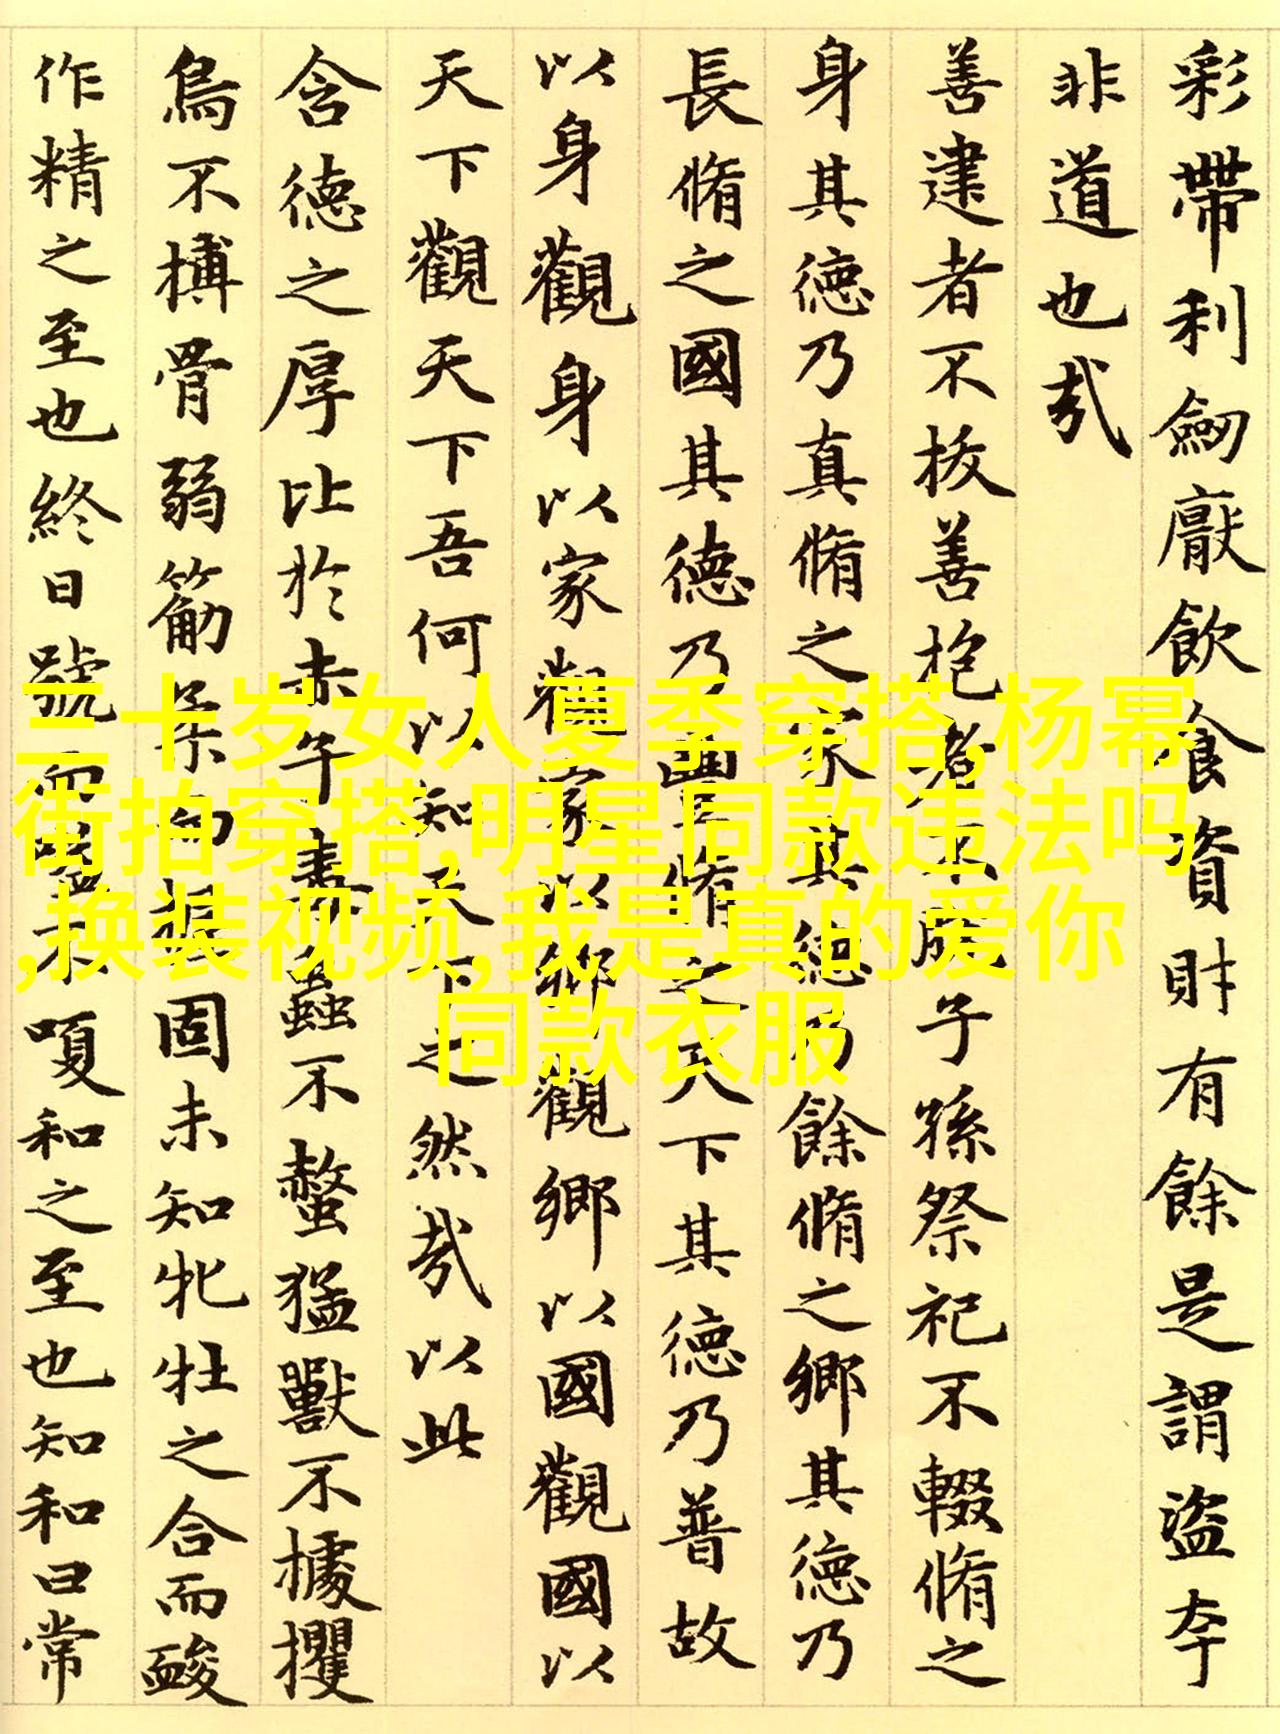 彩帶利劒厭飲食資財有餘是謂盜夸
非道也哉
善建者不拔善抱者不脫子孫祭祀不輟脩之
身其德乃真脩之家其德乃餘脩之鄉其德乃
長脩之國其德乃豐脩之天下其德乃普故
以身觀身以家觀家以鄉觀鄉以國觀國以
天下觀天下吾何以知天下之然哉以此
含德之厚比於赤子毒蟲不螫猛獸不據攫
鳥不搏骨弱筋柔而握固未知牝牡之合而䘒
作精之至也終日號而嗌不嗄和之至也知和曰常
三十岁女人夏季穿搭,杨幂
街拍穿搭,明星同款违法吗
,换装视频,我是真的爱你
同款衣服